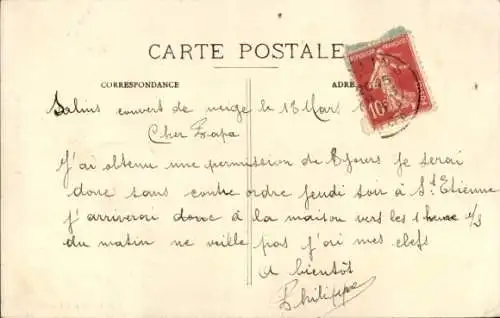 CARTE POSTALE
CORRESPONDANCE
ADRE
Salins couvert de neige le 13 Mars
Cher Papa
J'ai obtenu une permission de 8 jours je serai
donc sans contre ordre jeudi soir à St Etienne
j'arriverai donc à la maison vers les 1 heure
du matin ne veille pas j'ai mes clefs
A bientôt
Philippe
10